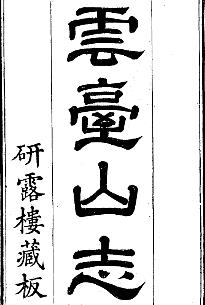 雲臺山志
研露樓藏板